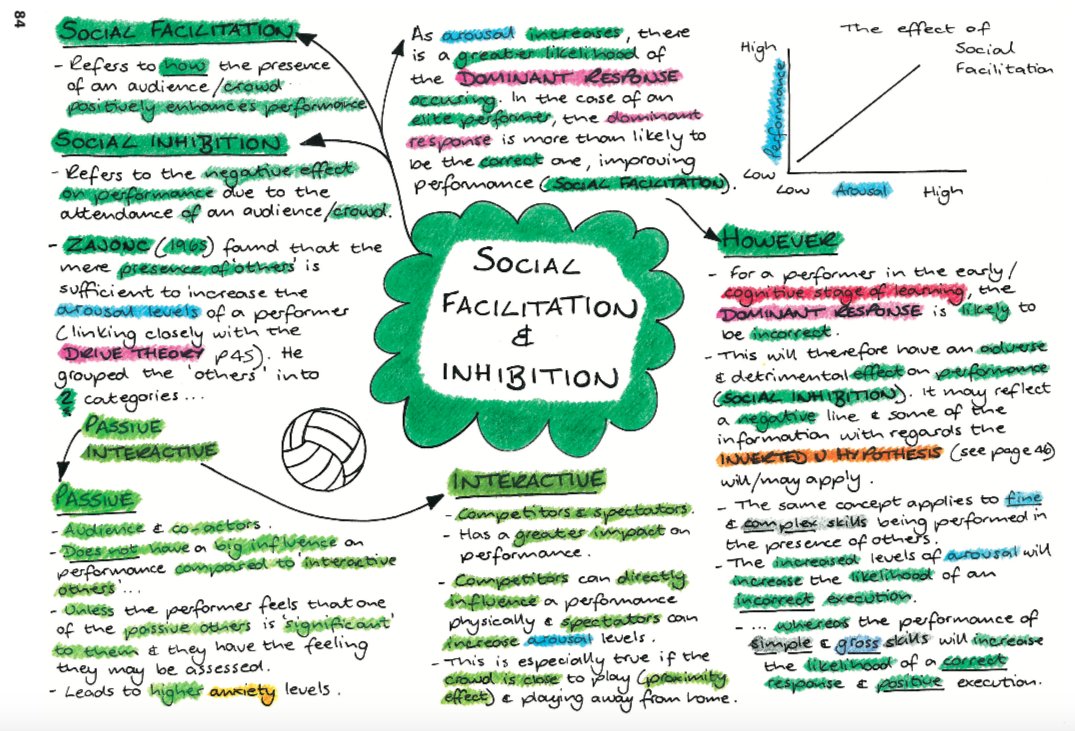 84
SOCIAL FACILITATION
- Refers to how the presence
of an audience/crowd
positively enhances performance
SOCIAL INHIBITION
- Refers to the negative effect
on performance due to the
attendance of an audience/crowd.
- ZAJONC (1965) found that the
mere presence of 'others' is
sufficient to increase the
arousal levels of a performer
(linking closely with the
DRIVE THEORY p45). He
grouped the 'others' into
2 categories...
PASSIVE
INTERACTIVE
PASSIVE
- Audience & co-actors.
- Does not have a big influence on
performance compared to 'interactive
others'...
- Unless the performer feels that one
of the passive others is 'significant'
to them & they have the feeling
they may be assessed.
- Leads to higher anxiety levels.
SOCIAL
FACILITATION
&
INHIBITION
As arousal increases, there
is a greater likelihood of
the DOMINANT RESPONSE
occuring. In the case of an
elite performer, the dominant
response is more than likely to
be the correct one, improving
performance (SOCIAL FACILITATION).
The effect of
Social
Facilitation
High
Performance
Low
Low
Arousal
High
INTERACTIVE
- Competitors & spectators.
- Has a greater impact on
performance.
- Competitors can directly
influence a performance
physically & spectators can
increase arousal levels.
- This is especially true if the
crowd is close to play (proximity
effect) & playing away from home.
HOWEVER
- For a performer in the early/
cognitive stage of learning, the
DOMINANT RESPONSE is likely to
be incorrect.
- This will therefore have an adverse
& detrimental effect on performance
(SOCIAL INHIBITION). It may reflect
a negative line & some of the
information with regards the
INVERTED U HYPOTHESIS (see page 46)
will/may apply.
- The same concept applies to fine
& complex skills being performed in
the presence of others.
- The increased levels of arousal will
increase the likelihood of an
incorrect execution.
- ... whereas the performance of
simple & gross skills will increase
the likelihood of a correct
response & positive execution.